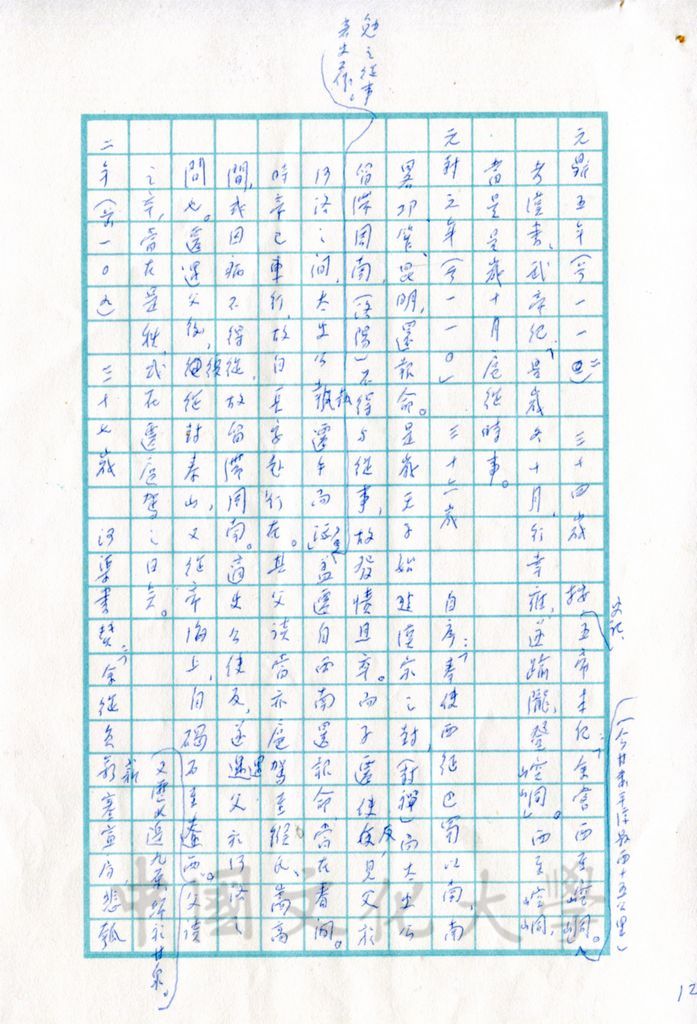 元鼎五年(前一一二) 三十四歲 按史記五帝本紀:「余嘗西至崆峒。
(今甘肅平涼縣西十五公里)
考漢書,武帝紀,是歲冬十月,行幸雍,遂踰隴,登崆峒。西至崆峒,
當是是歲十月扈從時事。
元封元年(前一一〇) 三十六歲 自序:「奉使西征巴蜀以南,南
略邛、笮、昆明,還報命。是歲天子始建漢家之封,(封禪)而太史公
留滯周南,(洛陽)不得與從事,故發憤且卒。而子遷使反,見父於
河洛之間,太史公執遷手而泣」蓋遷自西南還報命,當在春間。
勉之從事
時帝已東行,故自長安赴行在。其父談當亦扈駕至緱氏、嵩高
間,或因病不得從,故留滯周南。適史公使反,遂遇父於河洛之
間也。遷遇父後,復從封泰山,又從帝海上,自碣石至遼西。
又歷北邊九原歸於甘泉。
父談
之卒,當在是秋,或在遷扈駕之日矣。
二年(前一〇九) 三十七歲 河渠書贊:「余從負薪塞宣房,悲瓠
12
中國文化大學